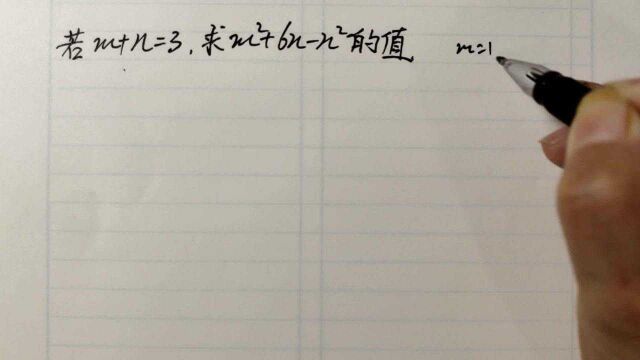 若m+n=3,求m²+6n-n²的值 m=1